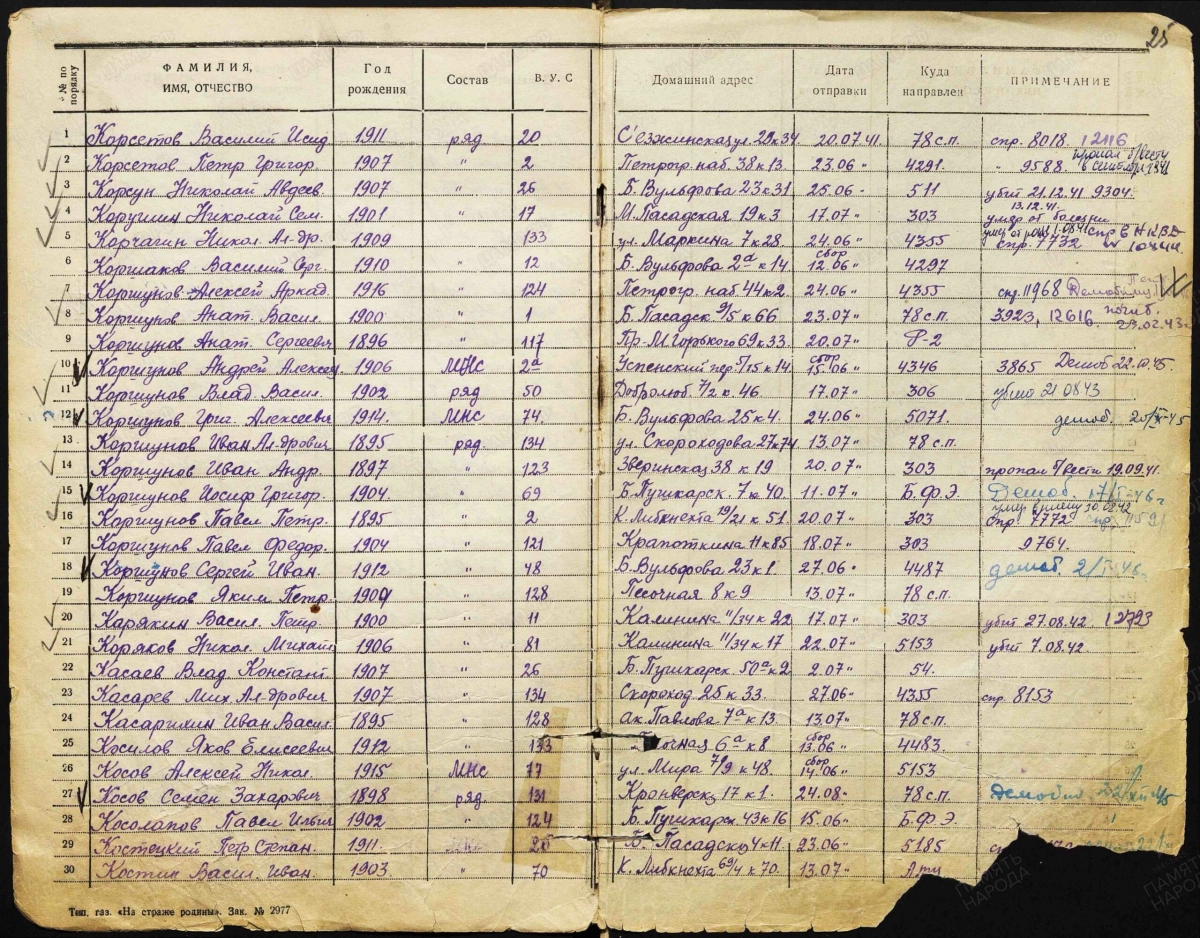 25
№ по порядку | ФАМИЛИЯ, ИМЯ, ОТЧЕСТВО | Год рождения | Состав | В. У. С | Домашний адрес | Дата отправки | Куда направлен | ПРИМЕЧАНИЕ
1 Корсетов Василий Исид 1911 ряд 20 С'езжинская ул. 22к34 20.07.41. 78 с.п. спр. 8018. 12116
2 Корсетов Петр Григор. 1907 " 2 Петрогр. наб. 38к13. 23.06 " 4291. " 9588. пропал б/вести в сентябре 1941
3 Корсун Николай Авдеев. 1907 " 26 Б. Вульфова 23к31 25.06 " 511 убит 21.12.41 9304.
4 Корушин Николай Сем. 1901 " 17 М. Пасадская 19к3 17.07 " 303 13.12.41. умер от болезни
5 Корчагин Никол. Ал-др. 1909 " 133 ул. Маркина 7к28. 24.06 " 4355 спр. 7732
6 Коршаков Василий Серг. 1910 " 12 Б. Вульфова 2а к14 сбор 12.06 " 4297
7 Коршунов Алексей Аркад. 1916 " 124 Петрогр. наб. 44к2. 24.06 " 4355 спр. 11968
8 Коршунов Анат. Васил. 1900 " 1 Б. Пасадск 9/5 к66 23.07 " 78 с.п. 3923, 12616. погиб. 23.02.43г.
9 Коршунов Анат. Сергеевич 1896 " 117 Пр-М.Горького 69к33. 20.07 " Ф-2
10 Коршунов Андрей Алексеев 1906 МНС 2а Успенский пер. 5/15 к14 сбор 15.06 " 4346 3865 Демоб 22.
11 Коршунов Влад. Васил. 1902 ряд 50 Добролюб. 7/2 к.46. 17.07 " 306 убит 21.08.43
12 Коршунов Григ. Алексеевич 1914. МНС 74. Б. Вульфова 25к4. 24.06 " 5071. демоб.
13 Коршунов Иван Ал-дрович 1895 ряд. 134 ул. Скороходова 27к74 13.07 " 78 с.п.
14 Коршунов Иван Андр. 1897 " 123 Зверинская 38 к 19 20.07 " 303 пропал б/вести 19.09.41.
15 Коршунов Иосиф Григор. 1904. " 69 Б. Пушкарск. 7к40. 11.07 " Б.Ф.Э. Демоб.
16 Коршунов Павел Петр. 1895 " 2 К. Либкнехта 19/21 к 51. 20.07 " 303 спр. 7772
17 Коршунов Павел Федор. 1904 " 121 Крапоткина 11к85 18.07 " 303 9764.
18 Коршунов Сергей Иван. 1912 " 48 Б. Вульфова 23к1. 27.06 " 4487 демоб.
19 Коршунов Яким Петр. 1904 " 128 Песочная 8к9 13.07 " 78 с.п.
20 Карякин Васил. Петр. 1900 " 11 Калинина 11/34 к22 17.07 " 303 убит 27.08.42. 12723
21 Коряков Никол. Михайл 1906 " 81 Калинина 11/34 к17 22.07 " 5153 убит 7.08.42
22 Касаев Влад. Констант 1907 " 26 Б. Пушкарск. 50а к2 2.07 " 54.
23 Касарев Мих Ал-дрович 1907 " 134 Скороход. 25к33. 27.06 " 4355 спр. 8153
24 Касарихин Иван Васил 1895 " 128 ак. Павлова 7а к13. 13.07 " 78 с.п.
25 Косилов Яков Елисеевич 1912 " 133 6а к8 сбор 13.06 " 4483.
26 Косов Алексей Никол. 1915 МНС 77 ул. Мира 7/9 к48. сбор 14.06 " 5153
27 Косов Семен Захарович 1898 ряд. 131 Кронверкск 17к1. 24.08 " 78 с.п.
28 Косолапов Павел Ильич 1902 " 124 Б. Пушкарск. 43к16 15.06 " Б.Ф.Э.
29 Костецкий Петр Степан. 1911. Б. Пасадская 4к11. 23.06 " 5185
30 Костин Васил. Иван. 1903 " 70 К. Либкнехта 69/4 к70. 13.07 "
Тип. газ. «На страже родины». Зак. № 2977
ПАМЯТЬ НАРОДА